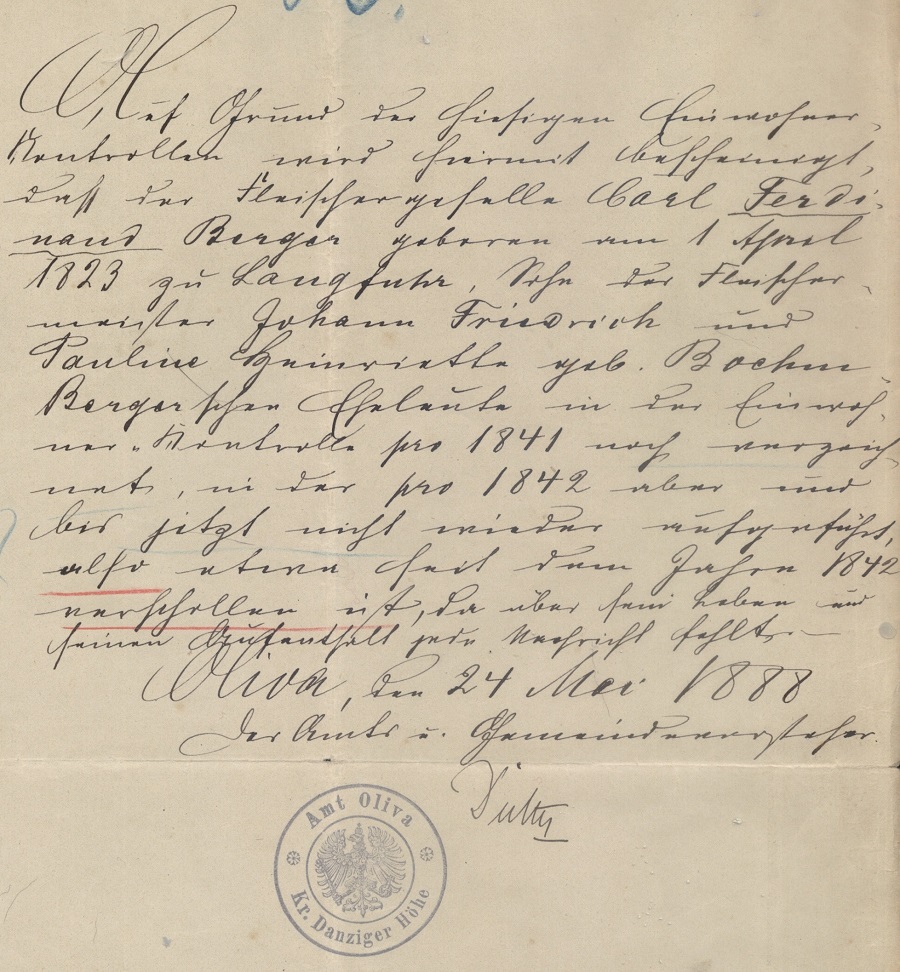 Auf Grund der hiesigen Einwohner-
Kontrollen wird hiermit bescheinigt,
daß der Fleischergeselle Carl Ferdi-
nand Berger geboren am 1 April
1823 zu Langfuhr, Sohn der Fleischer-
meister Johann Friedrich und
Pauline Heinriette geb. Boehm
Berger'schen Eheleute in der Einwoh-
ner-Kontrolle pro 1841 noch verzeich-
net, in der pro 1842 aber und
bis jetzt nicht wieder aufgeführt,
also etwa seit dem Jahre 1842
verschollen ist, da über sein Leben und
seinen Aufenthalt jede Nachricht fehlt.—
Oliva, den 24 Mai 1888
Der Amts u. Gemeindevorsteher.
Amt Oliva
Kr. Danziger Höhe